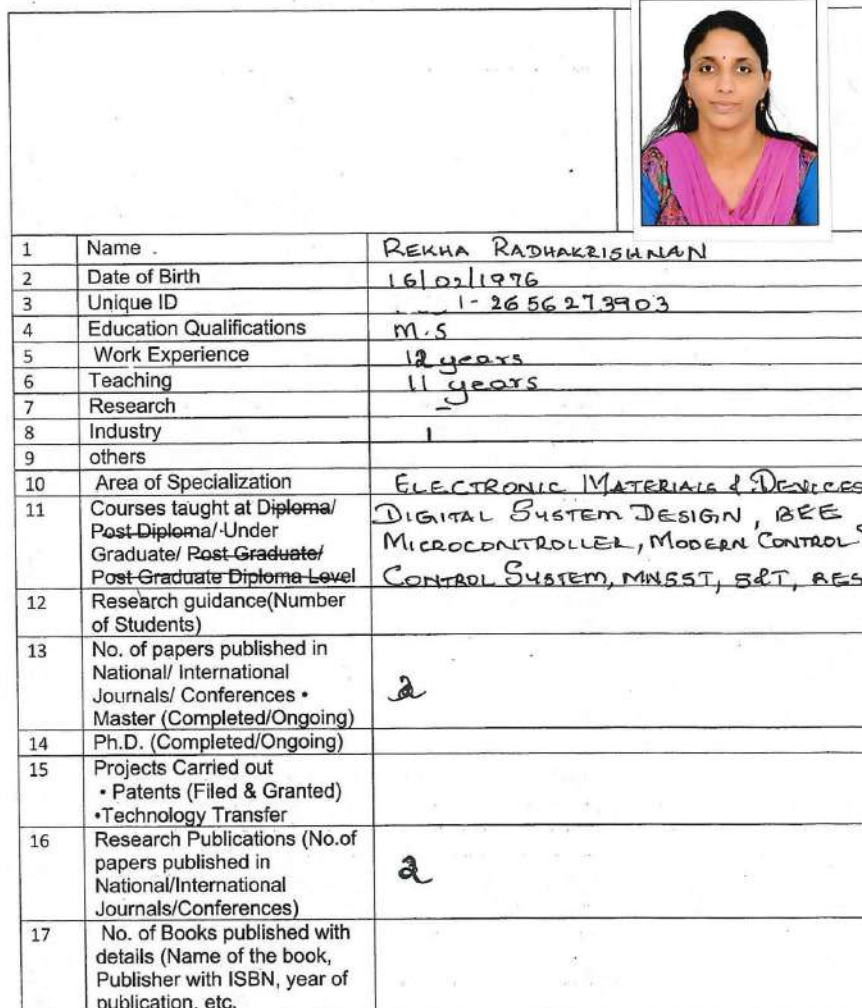 1 Name . REKHA RADHAKRISHNAN
2 Date of Birth 16/02/1976
3 Unique ID 1-2656273903
4 Education Qualifications M.S
5 Work Experience 12 years
6 Teaching 11 years
7 Research -
8 Industry 1
9 others
10 Area of Specialization ELECTRONIC MATERIALS & DEVICES
11 Courses taught at Diploma/ DIGITAL SYSTEM DESIGN, BEE
Post Diploma/ Under MICROCONTROLLER, MODERN CONTROL
Graduate/ Post Graduate/
Post Graduate Diploma Level CONTROL SYSTEM, MNSST, S&T, RES
12 Research guidance(Number
of Students)
13 No. of papers published in
National/ International
Journals/ Conferences • 2
Master (Completed/Ongoing)
14 Ph.D. (Completed/Ongoing)
15 Projects Carried out
• Patents (Filed & Granted)
•Technology Transfer
16 Research Publications (No.of
papers published in 2
National/International
Journals/Conferences)
17 No. of Books published with
details (Name of the book,
Publisher with ISBN, year of
publication, etc.